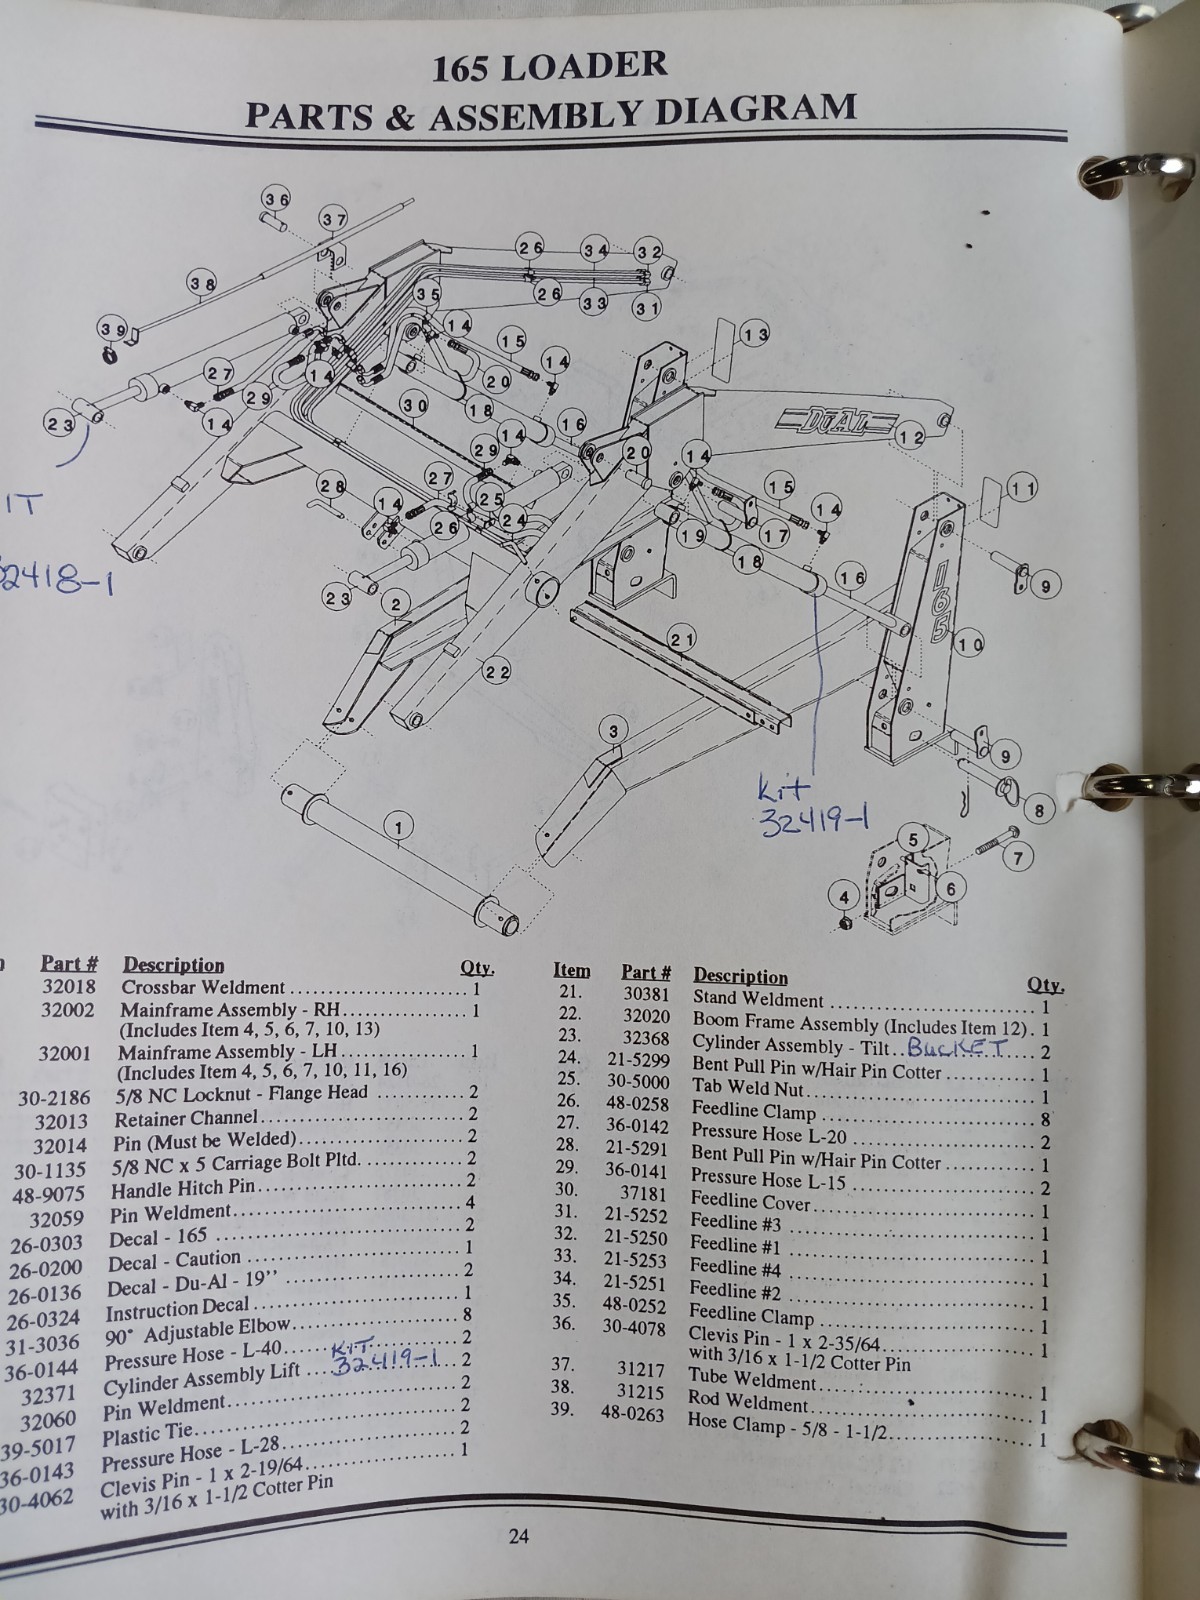 165 LOADER
PARTS & ASSEMBLY DIAGRAM
36
37
38
39
26
34
32
26
33
31
35
14
15
14
13
27
29
14
20
18
23
14
30
16
14
29
20
14
DUAL
12
28
14
27
25
24
26
15
14
11
19
17
18
16
9
23
2
165
10
21
22
3
9
8
1
5
7
4
6
IT
32418-1
Kit
32419-1
Part # Description Qty.
32018 Crossbar Weldment 1
32002 Mainframe Assembly - RH 1
(Includes Item 4, 5, 6, 7, 10, 13)
32001 Mainframe Assembly - LH 1
(Includes Item 4, 5, 6, 7, 10, 11, 16)
30-2186 5/8 NC Locknut - Flange Head 2
32013 Retainer Channel 2
32014 Pin (Must be Welded) 2
30-1135 5/8 NC x 5 Carriage Bolt Pltd. 2
48-9075 Handle Hitch Pin 2
32059 Pin Weldment 4
26-0303 Decal - 165 2
26-0200 Decal - Caution 1
26-0136 Decal - Du-Al - 19’’ 2
26-0324 Instruction Decal 1
31-3036 90° Adjustable Elbow 8
36-0144 Pressure Hose - L-40 KIT 2
32371 Cylinder Assembly Lift 32419-1 2
32060 Pin Weldment 2
39-5017 Plastic Tie 2
36-0143 Pressure Hose - L-28 2
30-4062 Clevis Pin - 1 x 2-19/64 1
with 3/16 x 1-1/2 Cotter Pin
Item Part # Description Qty.
21. 30381 Stand Weldment 1
22. 32020 Boom Frame Assembly (Includes Item 12) 1
23. 32368 Cylinder Assembly - Tilt BUCKET 2
24. 21-5299 Bent Pull Pin w/Hair Pin Cotter 1
25. 30-5000 Tab Weld Nut 1
26. 48-0258 Feedline Clamp 8
27. 36-0142 Pressure Hose L-20 2
28. 21-5291 Bent Pull Pin w/Hair Pin Cotter 1
29. 36-0141 Pressure Hose L-15 2
30. 37181 Feedline Cover 1
31. 21-5252 Feedline #3 1
32. 21-5250 Feedline #1 1
33. 21-5253 Feedline #4 1
34. 21-5251 Feedline #2 1
35. 48-0252 Feedline Clamp 1
36. 30-4078 Clevis Pin - 1 x 2-35/64 1
with 3/16 x 1-1/2 Cotter Pin
37. 31217 Tube Weldment 1
38. 31215 Rod Weldment 1
39. 48-0263 Hose Clamp - 5/8 - 1-1/2 1
24